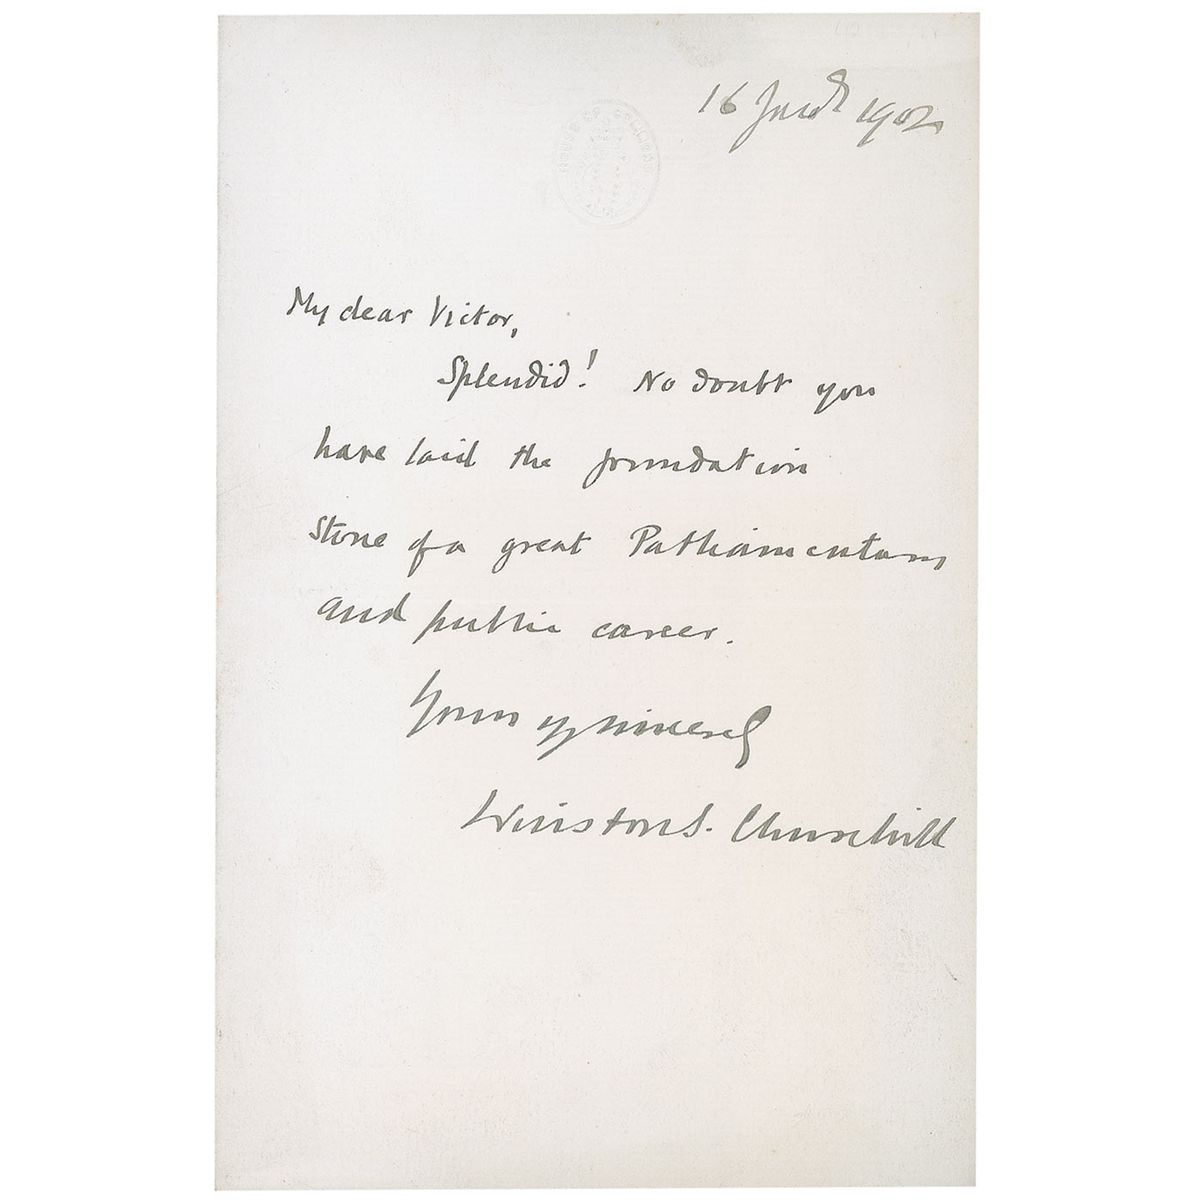 16 1902
My dear Victor,
Splendid! No doubt you
have laid the foundation
stone of a great Parliamentary
and public career.
Yours vy sincerely
Winston S. Churchill